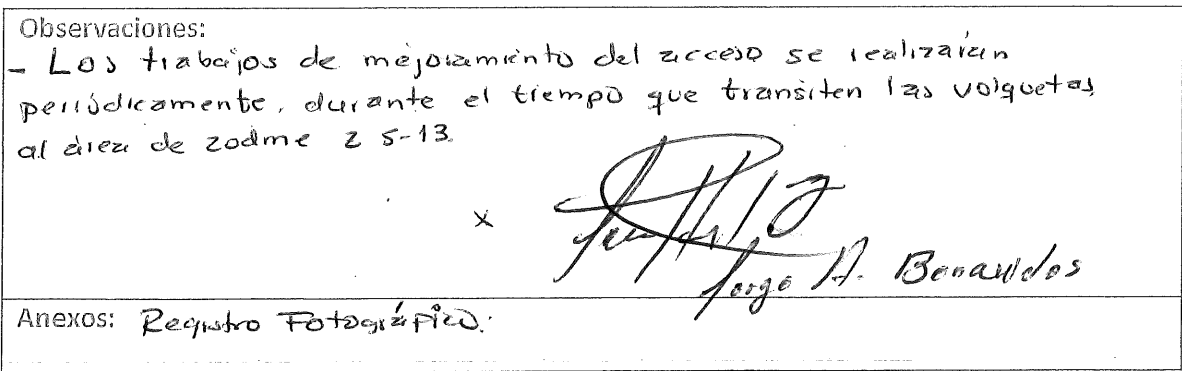 Observaciones:
- Los trabajos de mejoramiento del acceso se realizarán
periódicamente, durante el tiempo que transiten las volquetas
al área de zodme Z 5-13.
x
Jorge A. Benavides
Anexos: Registro Fotográfico.